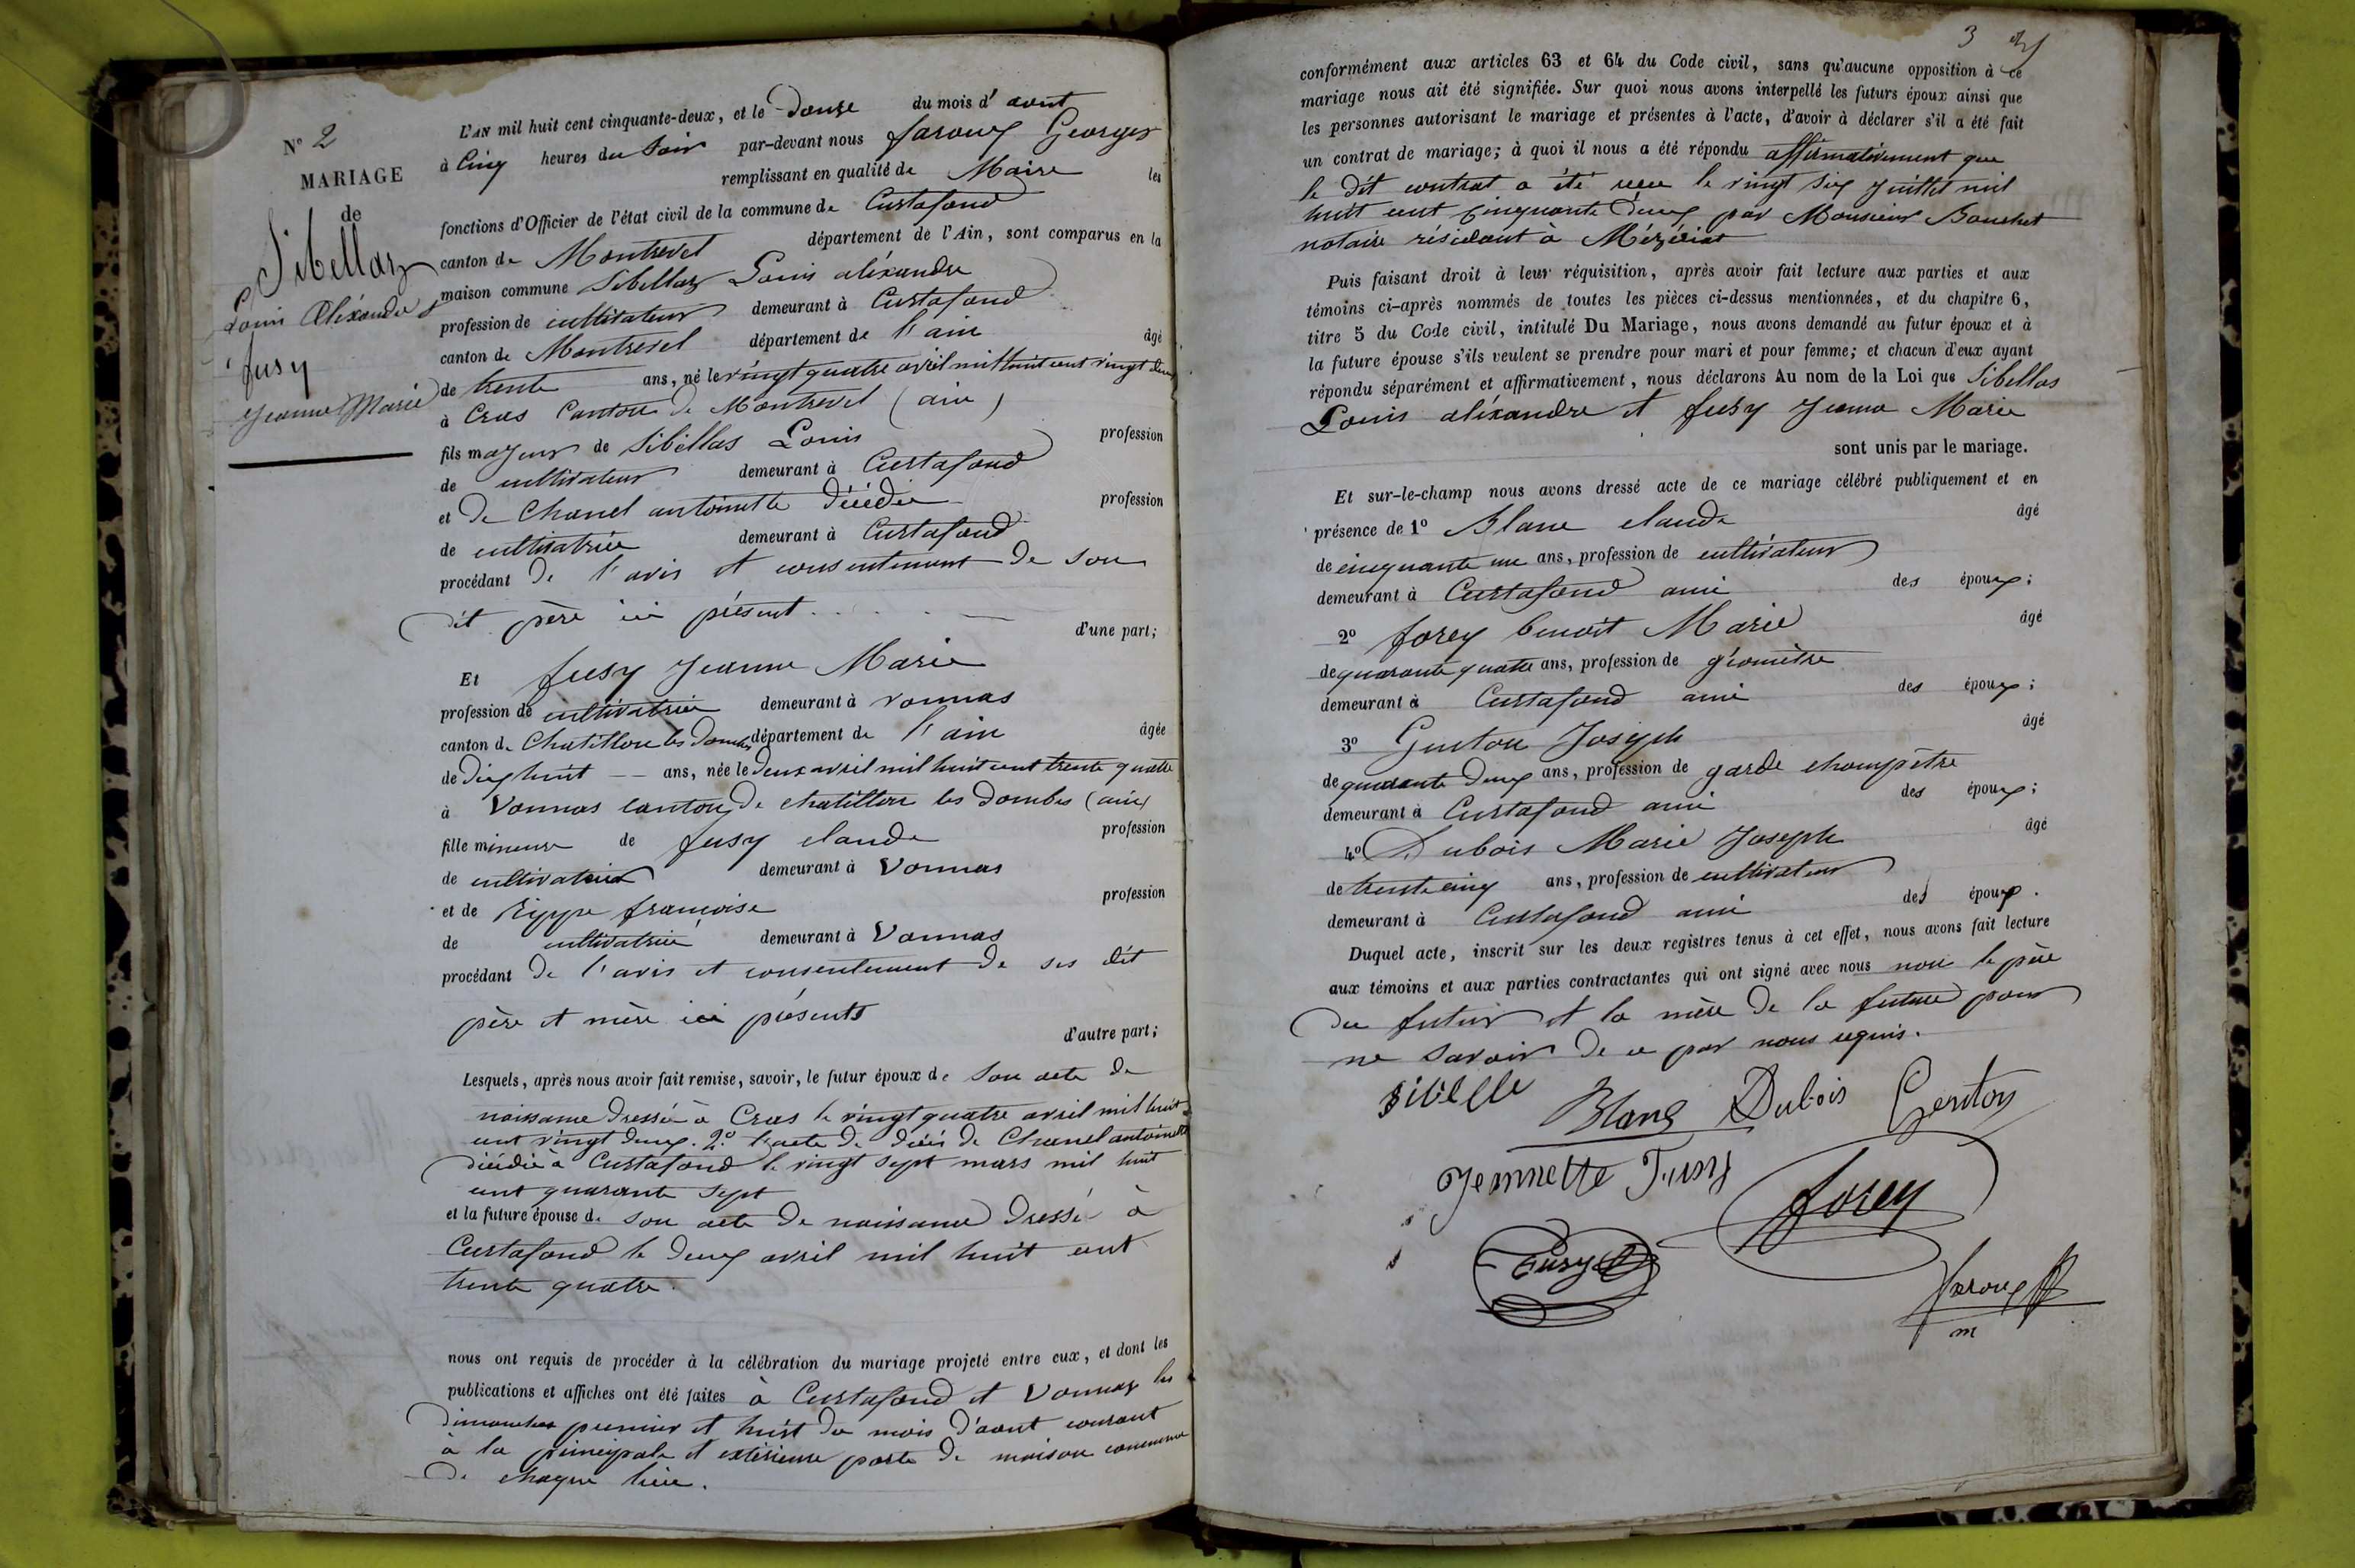 N° 2
MARIAGE
de
Sibellas
Louis Aléxandre
&
fusy
Jeanne Marie
L'AN mil huit cent cinquante-deux, et le Douze du mois d' aout
à Cinq heures du Soir par-devant nous faroux Georges
remplissant en qualité de Maire les
fonctions d'Officier de l'état civil de la commune de Curtafond
canton de Montrevel département de l'Ain, sont comparus en la
maison commune Sibellas Louis aléxandre
profession de cultivateur demeurant à Curtafond
canton de Montrevel département de l'ain âgé
de trente ans, né le vingt quatre avril mil huit cent vingt deux
à Cras Canton de Montrevel (ain)
fils majeur de Sibellas Louis profession
de cultivateur demeurant à Curtafond
et De Chanel antoinette Décédée profession
de cultivatrice demeurant à Curtafond
procédant De l'avis et consentement De son
Dit père ici présent
d'une part;
Et fusy Jeanne Marie
profession de cultivatrice demeurant à vonnas
canton de Chatillon les Dombes département de l'ain âgée
de Dix huit ans, née le Deux avril mil huit cent trente quatre
à Vonnas canton De chatillon les Dombes (ain)
fille mineure de fusy claude profession
de cultivateur demeurant à Vonnas
et de Rippe francoise profession
de cultivatrice demeurant à Vonnas
procédant De l'avis et consentement De ses Dit
père et mère ici présents
d'autre part;
Lesquels, après nous avoir fait remise, savoir, le futur époux de Son acte De
naissance Dressée à Cras le vingt quatre avril mil huit
cent vingt deux. 2° l'acte De Décés De Chanel antoinette
Décédée à Curtafond le vingt sept mars mil huit
cent quarante sept
et la future épouse de son acte De naissance Dressé à
Curtafond le Deux avril mil huit cent
trente quatre.
nous ont requis de procéder à la célébration du mariage projeté entre eux, et dont les
publications et affiches ont été faites à Curtafond et Vonnas les
Dimanches premier et huit Du mois D'aout courant
à la principale et extérieure porte De maison commune
De chaque lieu.
3
conformément aux articles 63 et 64 du Code civil, sans qu'aucune opposition à ce
mariage nous ait été signifiée. Sur quoi nous avons interpellé les futurs époux ainsi que
les personnes autorisant le mariage et présentes à l'acte, d'avoir à déclarer s'il a été fait
un contrat de mariage; à quoi il nous a été répondu affirmativement que
le Dit contrat a été reçu le vingt six Juillet mil
huit cent cinquante Deux par Monsieur Bouchet
notaire résidant à Mézériat
Puis faisant droit à leur réquisition, après avoir fait lecture aux parties et aux
témoins ci-après nommés de toutes les pièces ci-dessus mentionnées, et du chapitre 6,
titre 5 du Code civil, intitulé Du Mariage, nous avons demandé au futur époux et à
la future épouse s'ils veulent se prendre pour mari et pour femme; et chacun d'eux ayant
répondu séparément et affirmativement, nous déclarons Au nom de la Loi que Sibellas
Louis aléxandre et fusy Jeanne Marie
sont unis par le mariage.
Et sur-le-champ nous avons dressé acte de ce mariage célébré publiquement et en
présence de 1° Blanc claude âgé
de cinquante un ans, profession de cultivateur
demeurant à Curtafond ami des époux;
2° forey benoit Marie âgé
de quarante quatre ans, profession de géomètre
demeurant à Curtafond ami des époux;
3° Genton Joseph âgé
de quarante Deux ans, profession de garde champêtre
demeurant à Curtafond ami des époux;
4° Dubois Marie Joseph âgé
de trente cinq ans, profession de cultivateur
demeurant à Curtafond ami des époux.
Duquel acte, inscrit sur les deux registres tenus à cet effet, nous avons fait lecture
aux témoins et aux parties contractantes qui ont signé avec nous non le père
Du futur et la mère De la future pour
ne Savoir De ce par nous requis.
Blanc Dubois Genton
Jennette Fusy
forey
Fusy
faroux
m